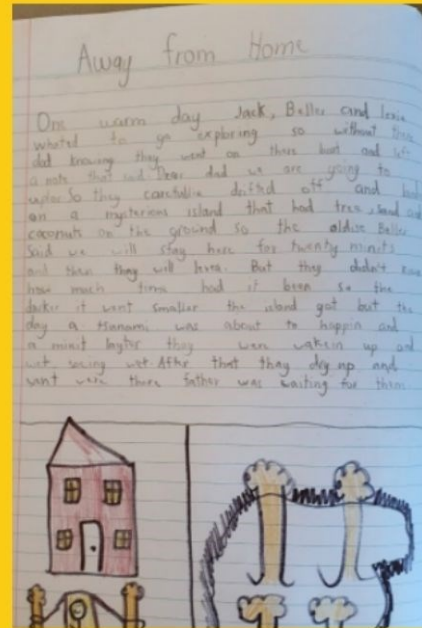 Away from Home
One warm day Jack, Belles and
whated to go exploring so without there
dad knowing they went on there boat and left
a note that said Dear dad we are going to
So they carefullie drifted off and
on a mysterious island that had tree, sand and
coconuts on the ground so the oldist Belles
said we will stay here for twenty minits
and then they will leave. But they didn't
how much time had it been so the
darker it went smaller the island got but the
day a tsunami was about to happin and
a minit layter they were waken up and
wet soking wet. After that they dry up and
want were there father was waiting for them